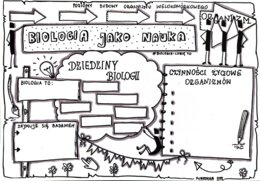 POZIOMY BUDOWY ORGANIZMU WIELOKOMÓRKOWEGO
ORGANIZM
BIOLOGIA JAKO NAUKA
DZIEDZINY
BIOLOGII
CZYNNOŚCI ŻYCIOWE
ORGANIZMÓW
BIOLOGIA TO:
ZAJMUJE SIĘ BADANIEM